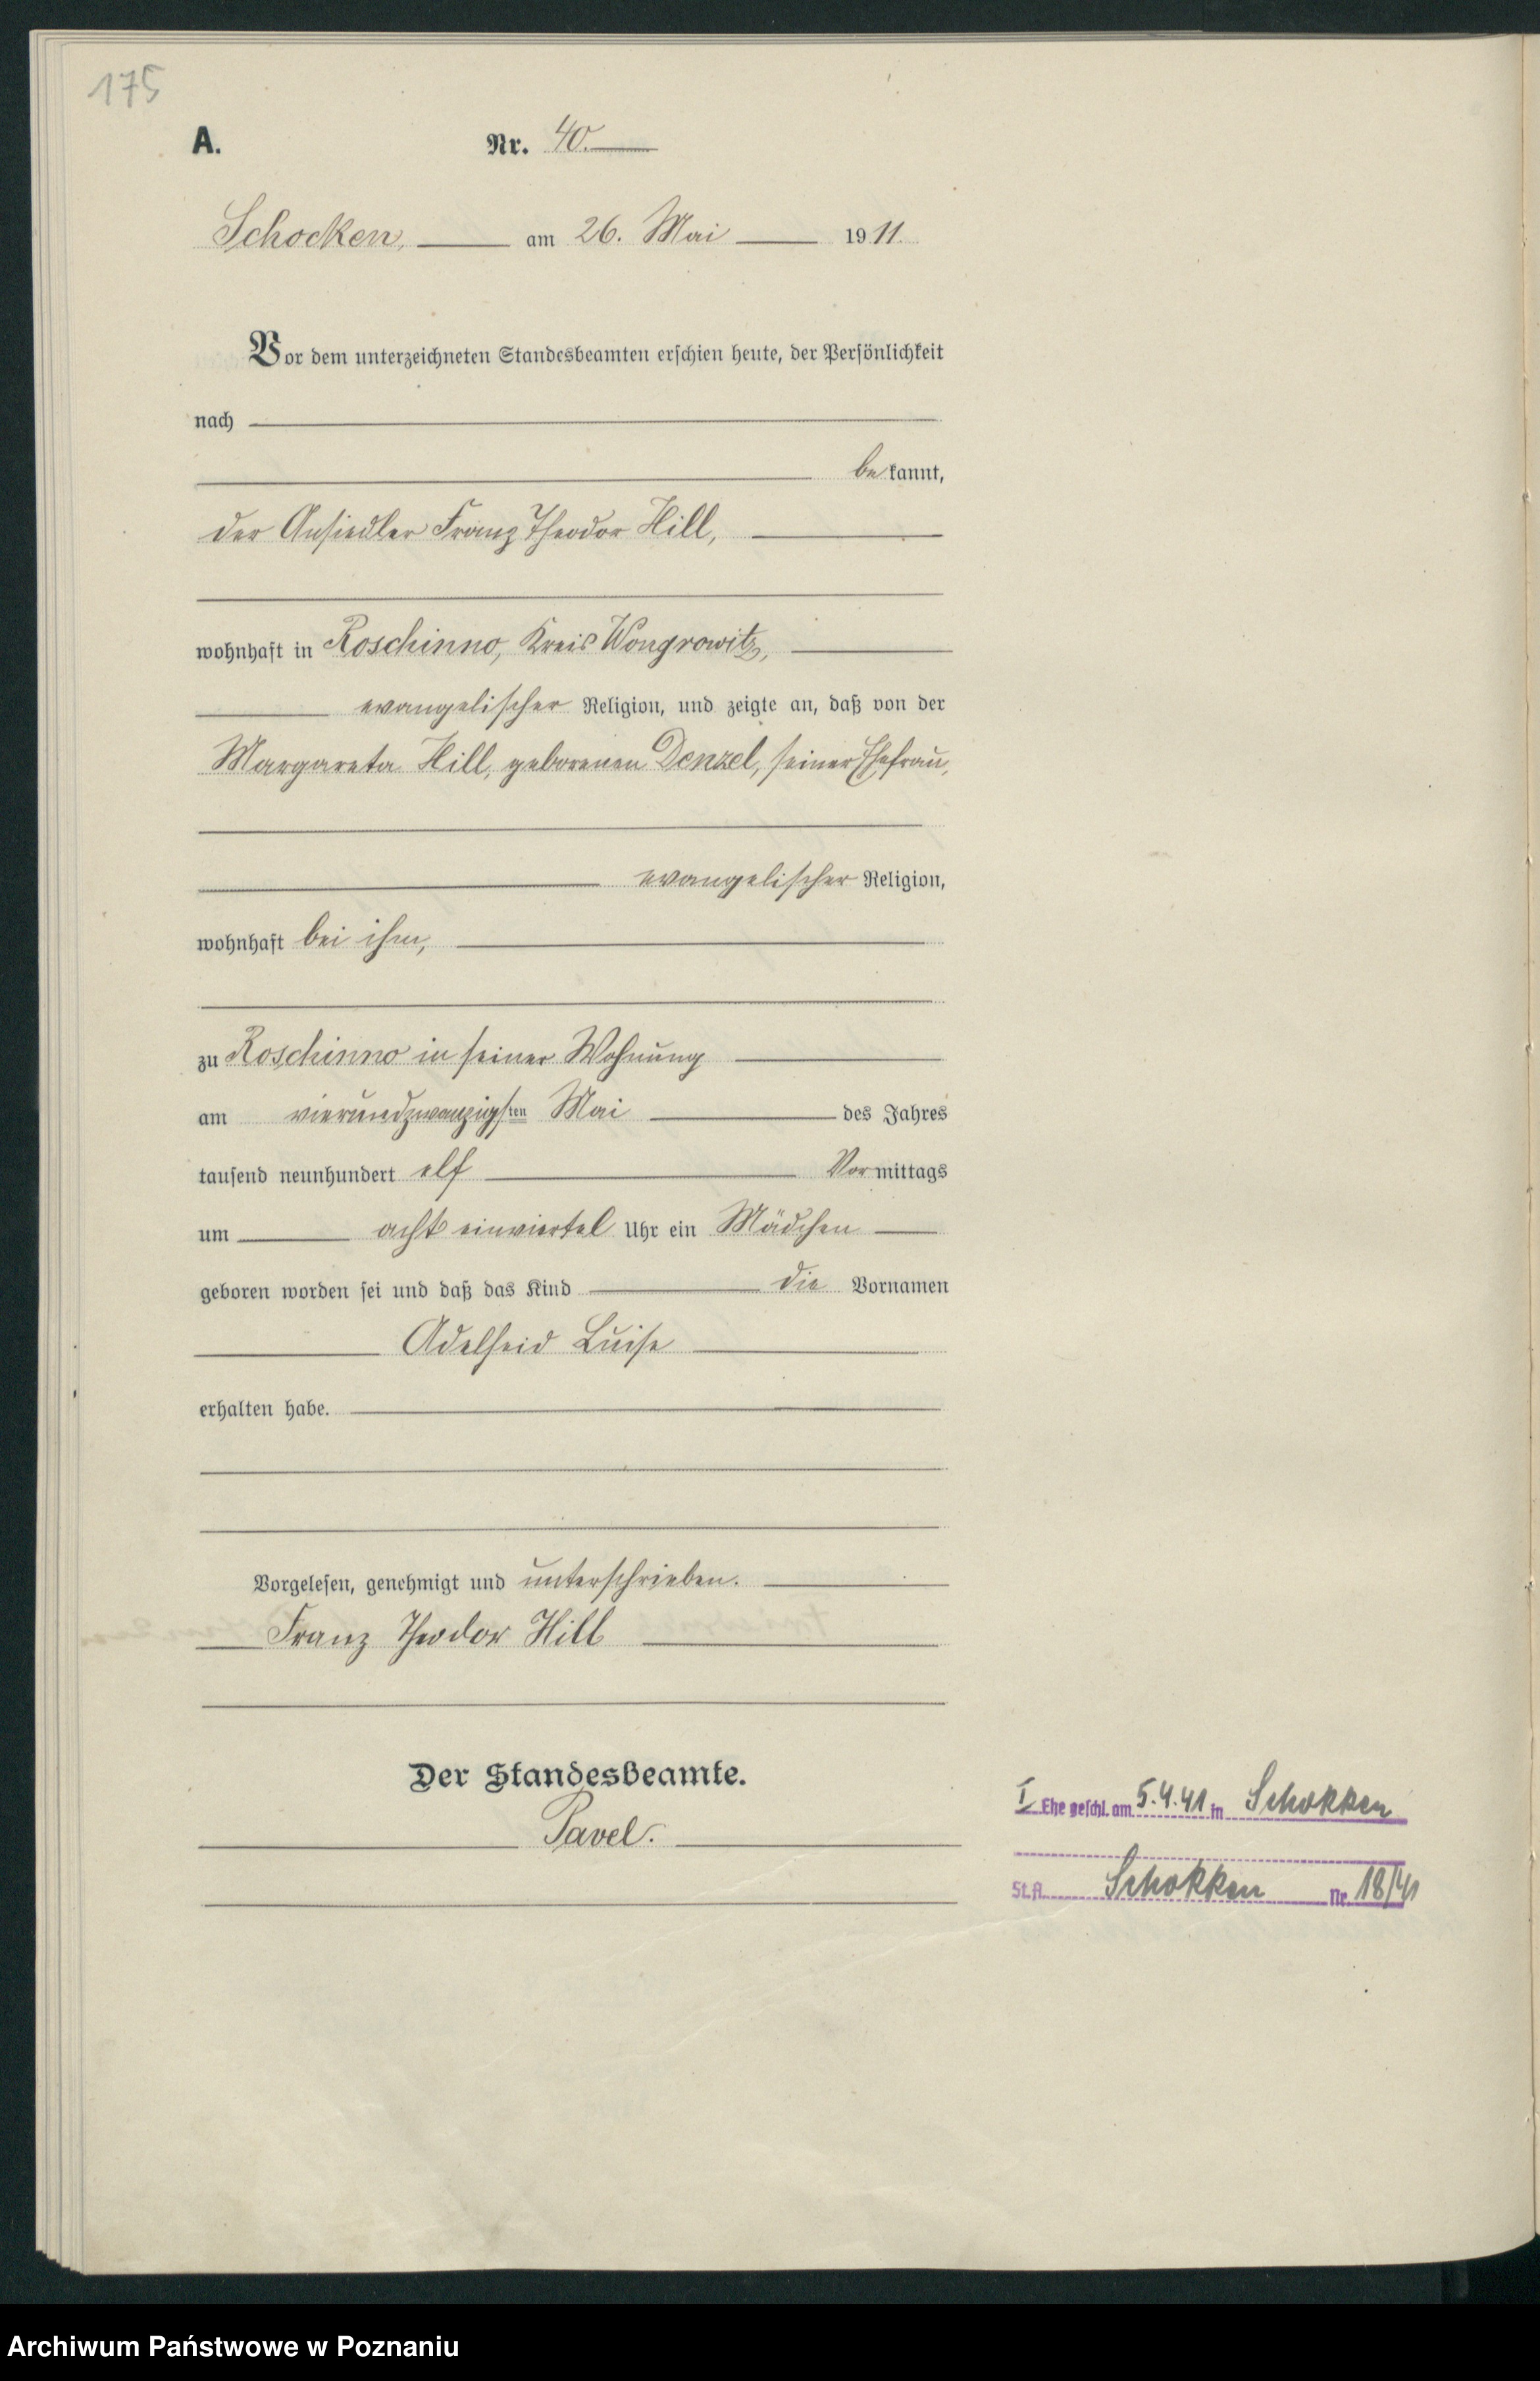 175
A. Nr. 40.
Schocken, am 26. Mai 1911.
Vor dem unterzeichneten Standesbeamten erschien heute, der Persönlichkeit
nach
bekannt,
der Ansiedler Franz Theodor Hill,
wohnhaft in Roschinno, Kreis Wongrowitz,
evangelischer Religion, und zeigte an, daß von der
Margareta Hill, geborenen Denzel, seiner Ehefrau,
evangelischer Religion,
wohnhaft bei ihm,
zu Roschinno in seiner Wohnung
am vierundzwanzigsten Mai des Jahres
tausend neunhundert elf Vormittags
um acht einviertel Uhr ein Mädchen
geboren worden sei und daß das Kind die Vornamen
Adelheid Luise
erhalten habe.
Vorgelesen, genehmigt und unterschrieben.
Franz Theodor Hill
Der Standesbeamte.
Pavel.
I Ehe geschl. am 5.4.41 in Schokken
St.A. Schokken Nr. 18/41
Archiwum Państwowe w Poznaniu